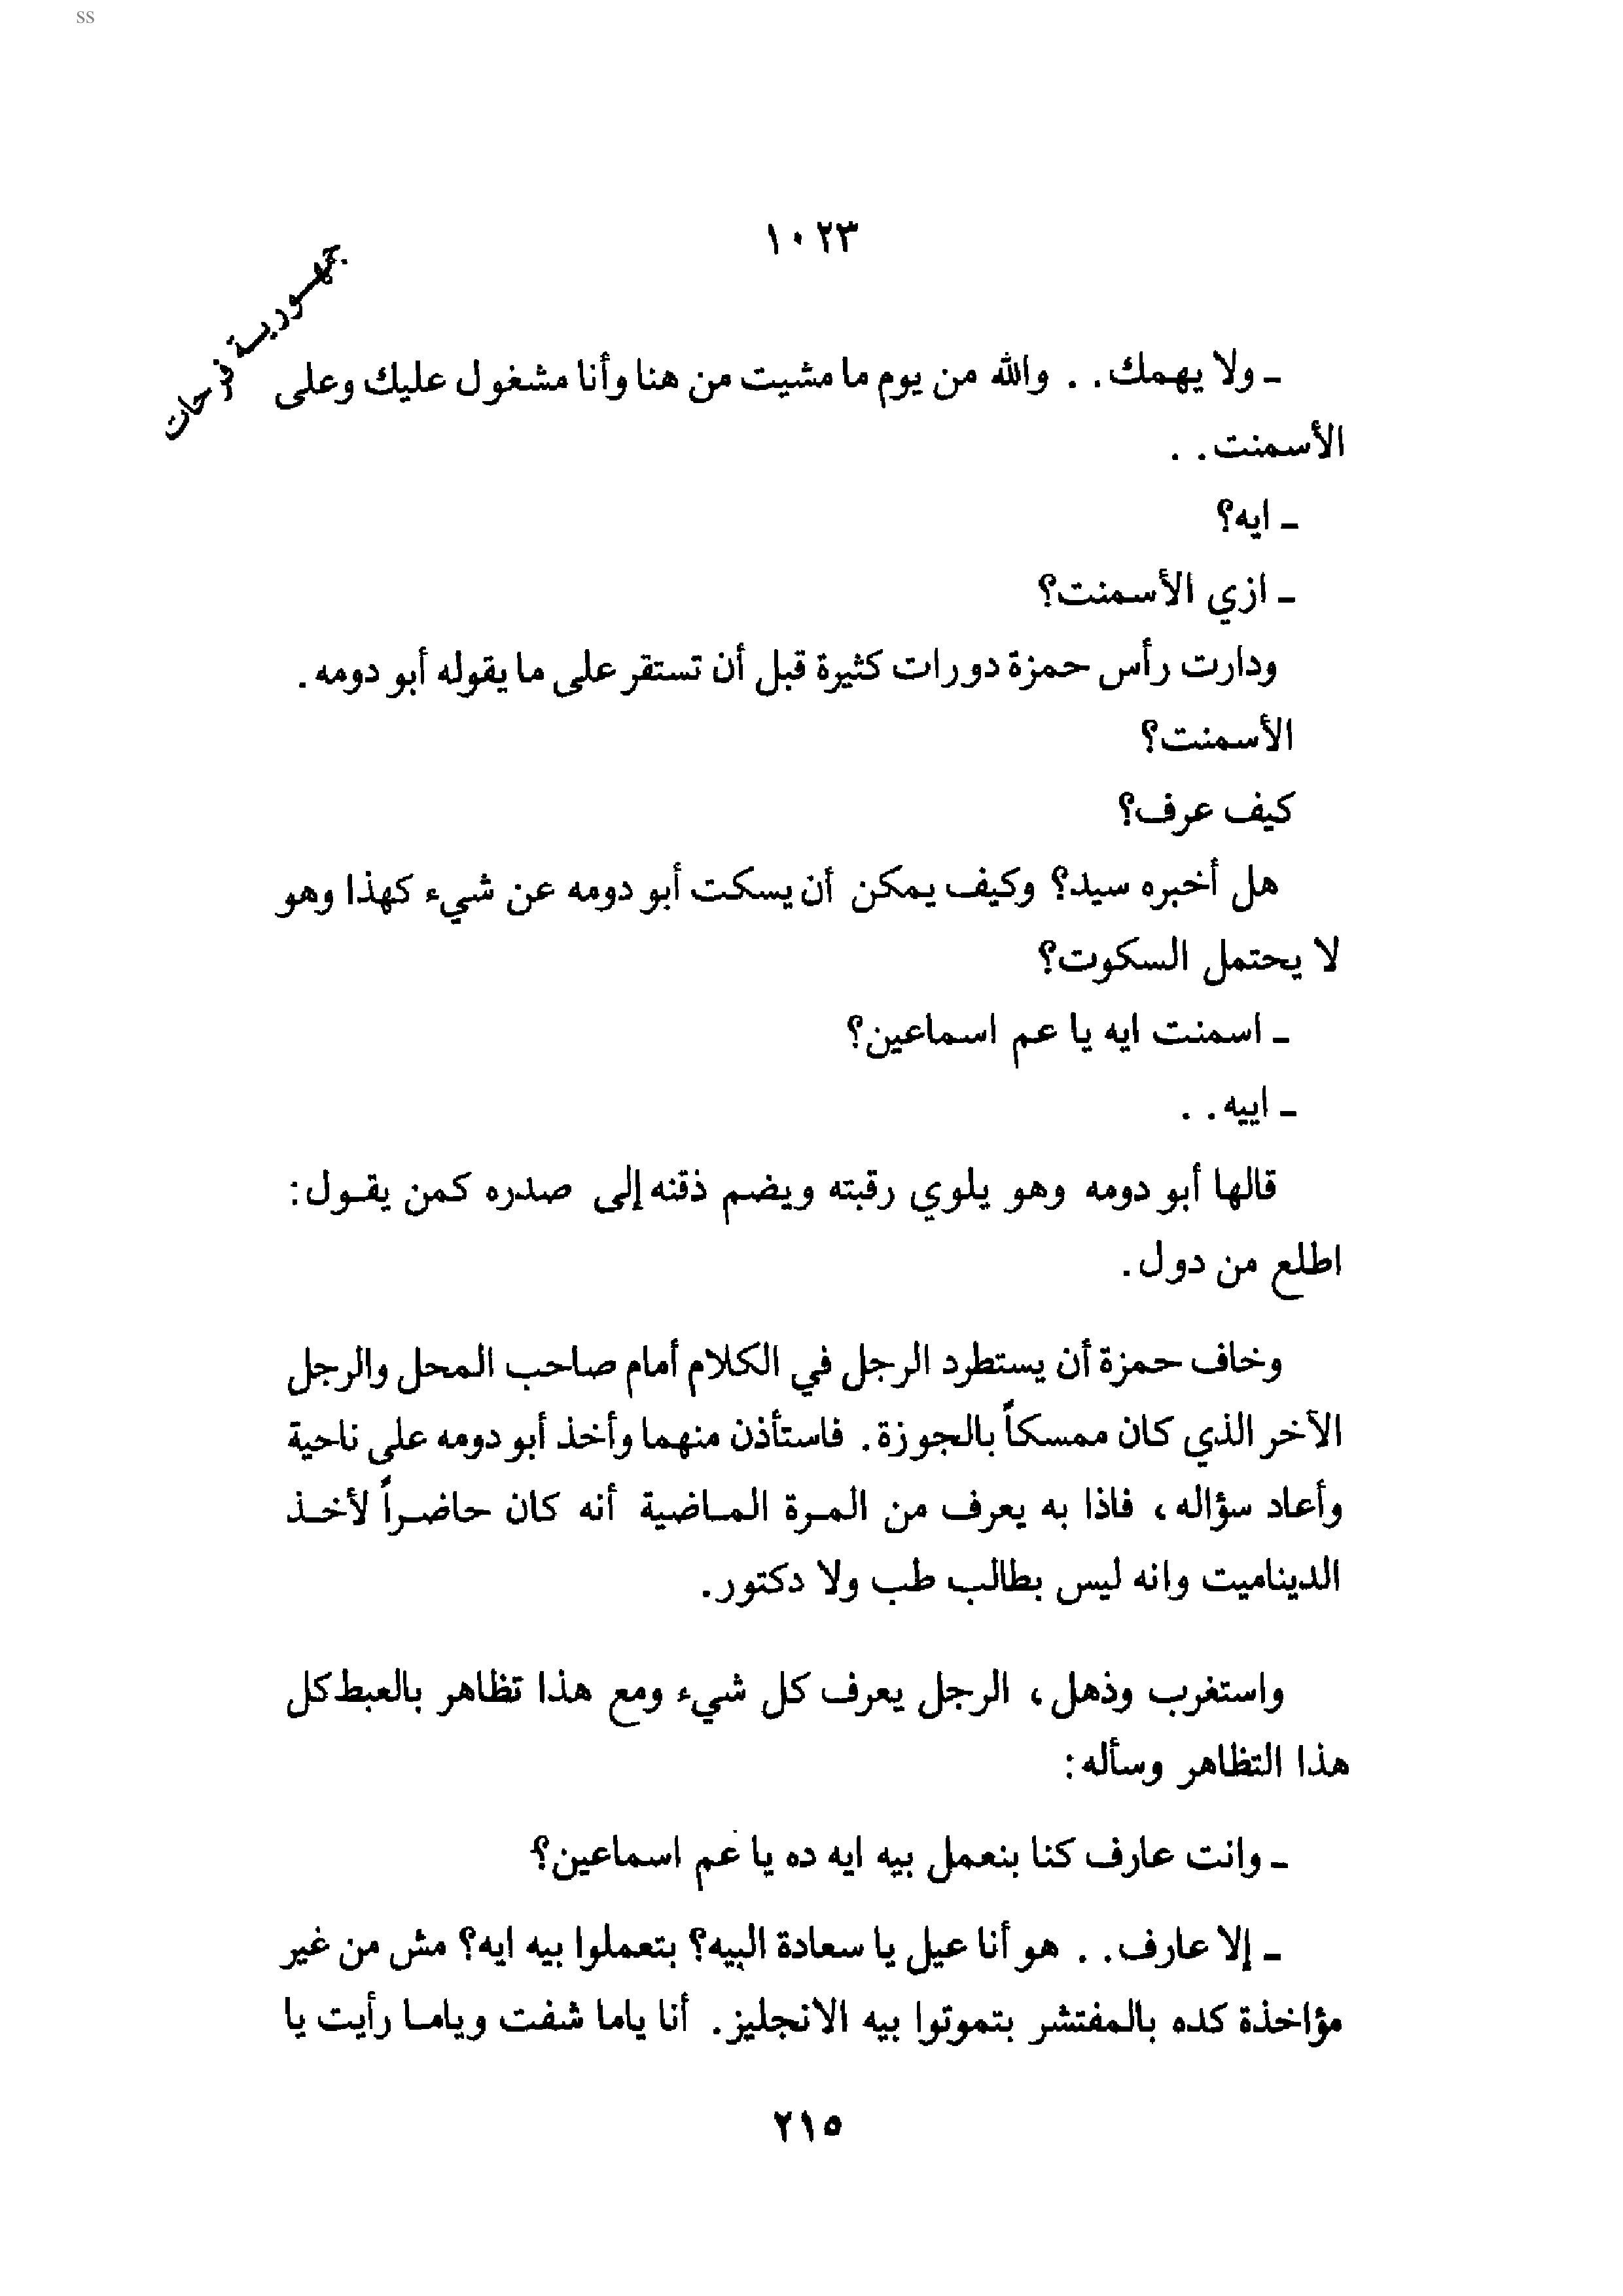 ss
١٠٢٣
جمهورية فرحات
ـ ولا يهمك. . والله من يوم ما مشيت من هنا وأنا مشغول عليك وعلى
الأسمنت. .
ـ ايه؟
ـ ازي الأسمنت؟
ودارت رأس حمزة دورات كثيرة قبل أن تستقر على ما يقوله أبو دومه.
الأسمنت؟
كيف عرف؟
هل أخبره سيد؟ وكيف يمكن أن يسكت أبو دومه عن شيء كهذا وهو
لا يحتمل السكوت؟
ـ اسمنت ايه يا عم اسماعين؟
ـ اييه. .
قالها أبو دومه وهو يلوي رقبته ويضم ذقنه إلى صدره كمن يقـول:
اطلع من دول.
وخاف حمزة أن يستطرد الرجل في الكلام أمام صاحب المحل والرجل
الآخر الذي كان ممسكاً بالجوزة. فاستأذن منهما وأخذ أبو دومه على ناحية
وأعاد سؤاله، فاذا به يعرف من المـرة المـاضية أنه كان حاضـراً لأخـذ
الديناميت وانه ليس بطالب طب ولا دكتور.
واستغرب وذهل، الرجل يعرف كل شيء ومع هذا تظاهر بالعبط كل
هذا التظاهر وسأله:
ـ وانت عارف كنا بنعمل بيه ايه ده يا عم اسماعين؟
ـ إلا عارف. . هو أنا عيل يا سعادة البيه؟ بتعملوا بيه ايه؟ مش من غير
مؤاخذة كده بالمفتشر بتموتوا بيه الانجليز. أنا ياما شفت ويامـا رأيت يا
٢١٥